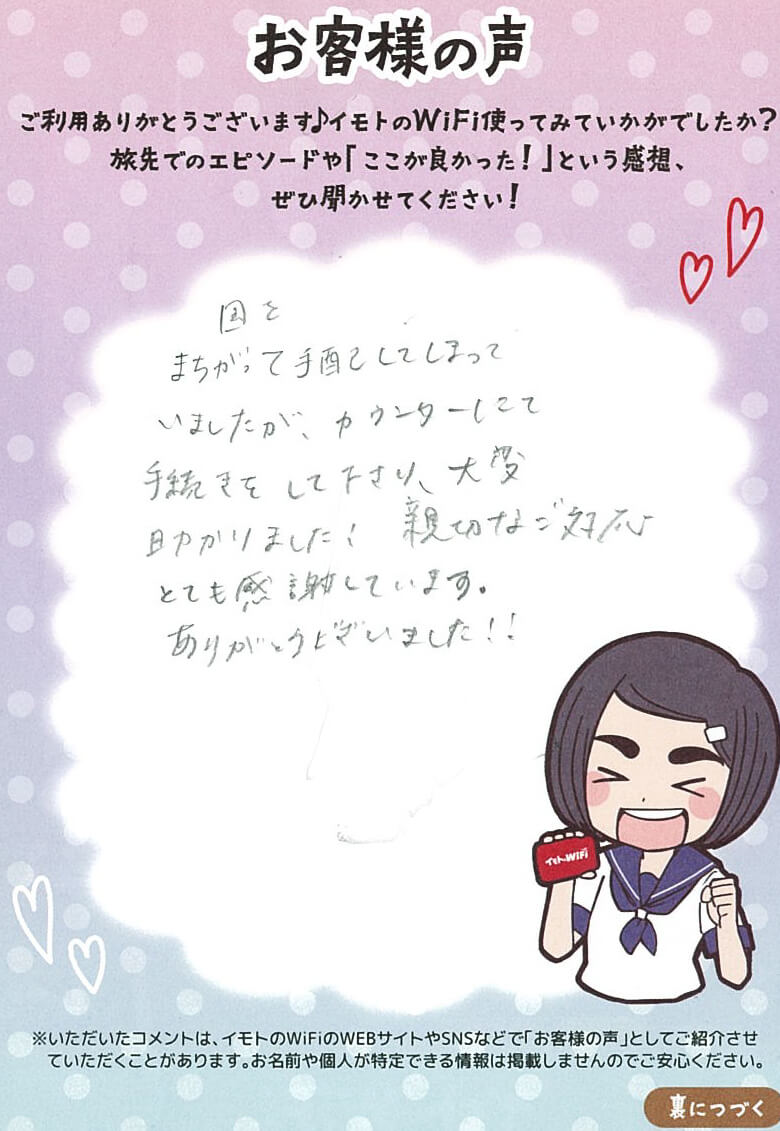 お客様の声
ご利用ありがとうございます♪イモトのWiFi使ってみていかがでしたか?
旅先でのエピソードや「ここが良かった!」という感想、
ぜひ聞かせてください!
国を
まちがって手配してしまって
いましたが、カウンターにて
手続きをして下さり、大変
助かりました! 親切なご対応
とても感謝しています。
ありがとうございました!!
イモトのWiFi
※いただいたコメントは、イモトのWiFiのWEBサイトやSNSなどで「お客様の声」としてご紹介させ
ていただくことがあります。お名前や個人が特定できる情報は掲載しませんのでご安心ください。
裏につづく